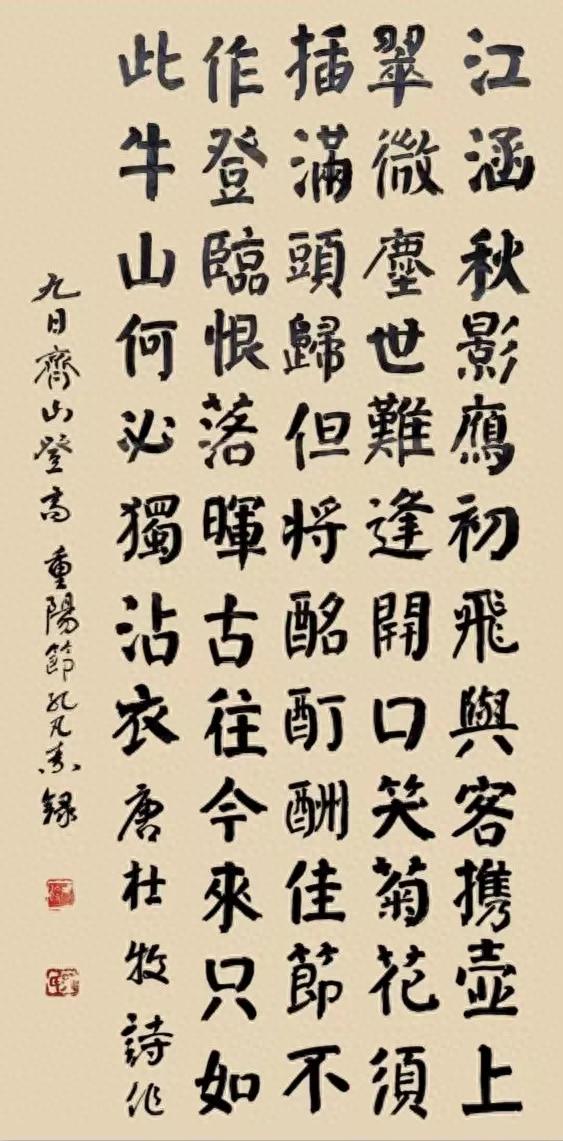 江涵秋影鴈初飛與客携壺上
翠微塵世難逢開口笑菊花須
插滿頭歸但將酩酊酬佳節不
作登臨恨落暉古往今來只如
此牛山何必獨沾衣唐杜牧詩作
九日齊山登高 重陽節孔凡錄